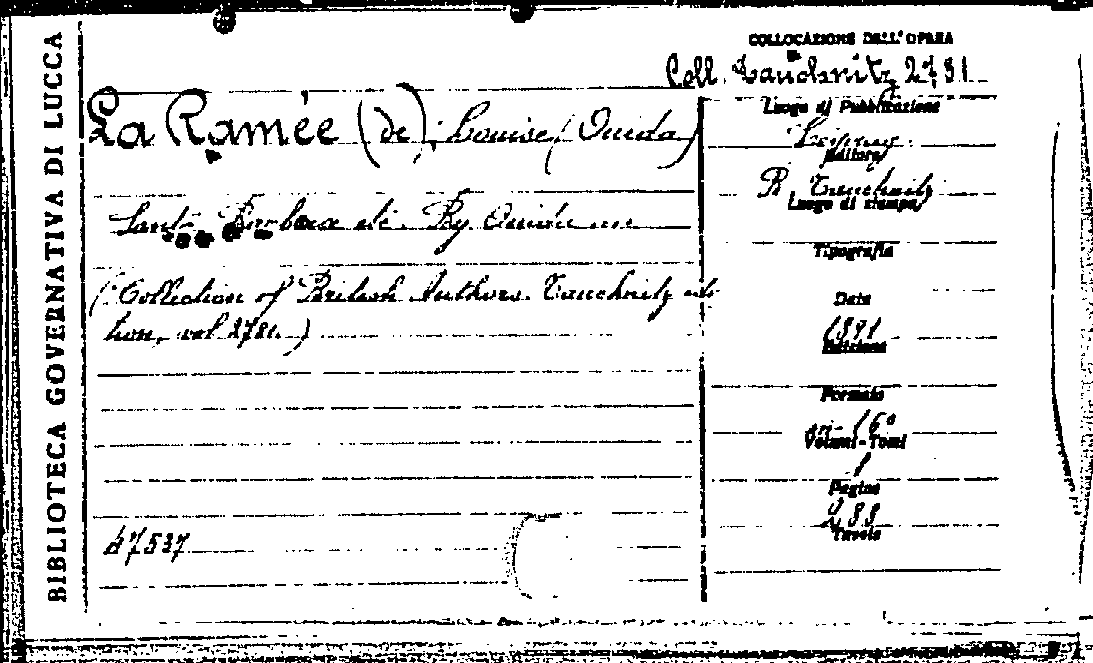 BIBLIOTECA GOVERNATIVA DI LUCCA
COLLOCAZIONE DELL'OPERA
Coll. Tauchnitz 2731
La Ramée (de), Louise (Ouida)
Santa Barbara etc. By Ouida
(Collection of British Authors. Tauchnitz edi-
tion, vol 2731.)
47537
Luogo di Pubblicazione
Editore
B. Tauchnitz
Luogo di stampa
Tipografia
Data
1891
Edizione
Formato
in-16°
Volumi-Tomi
1
Pagine
288
Tavole